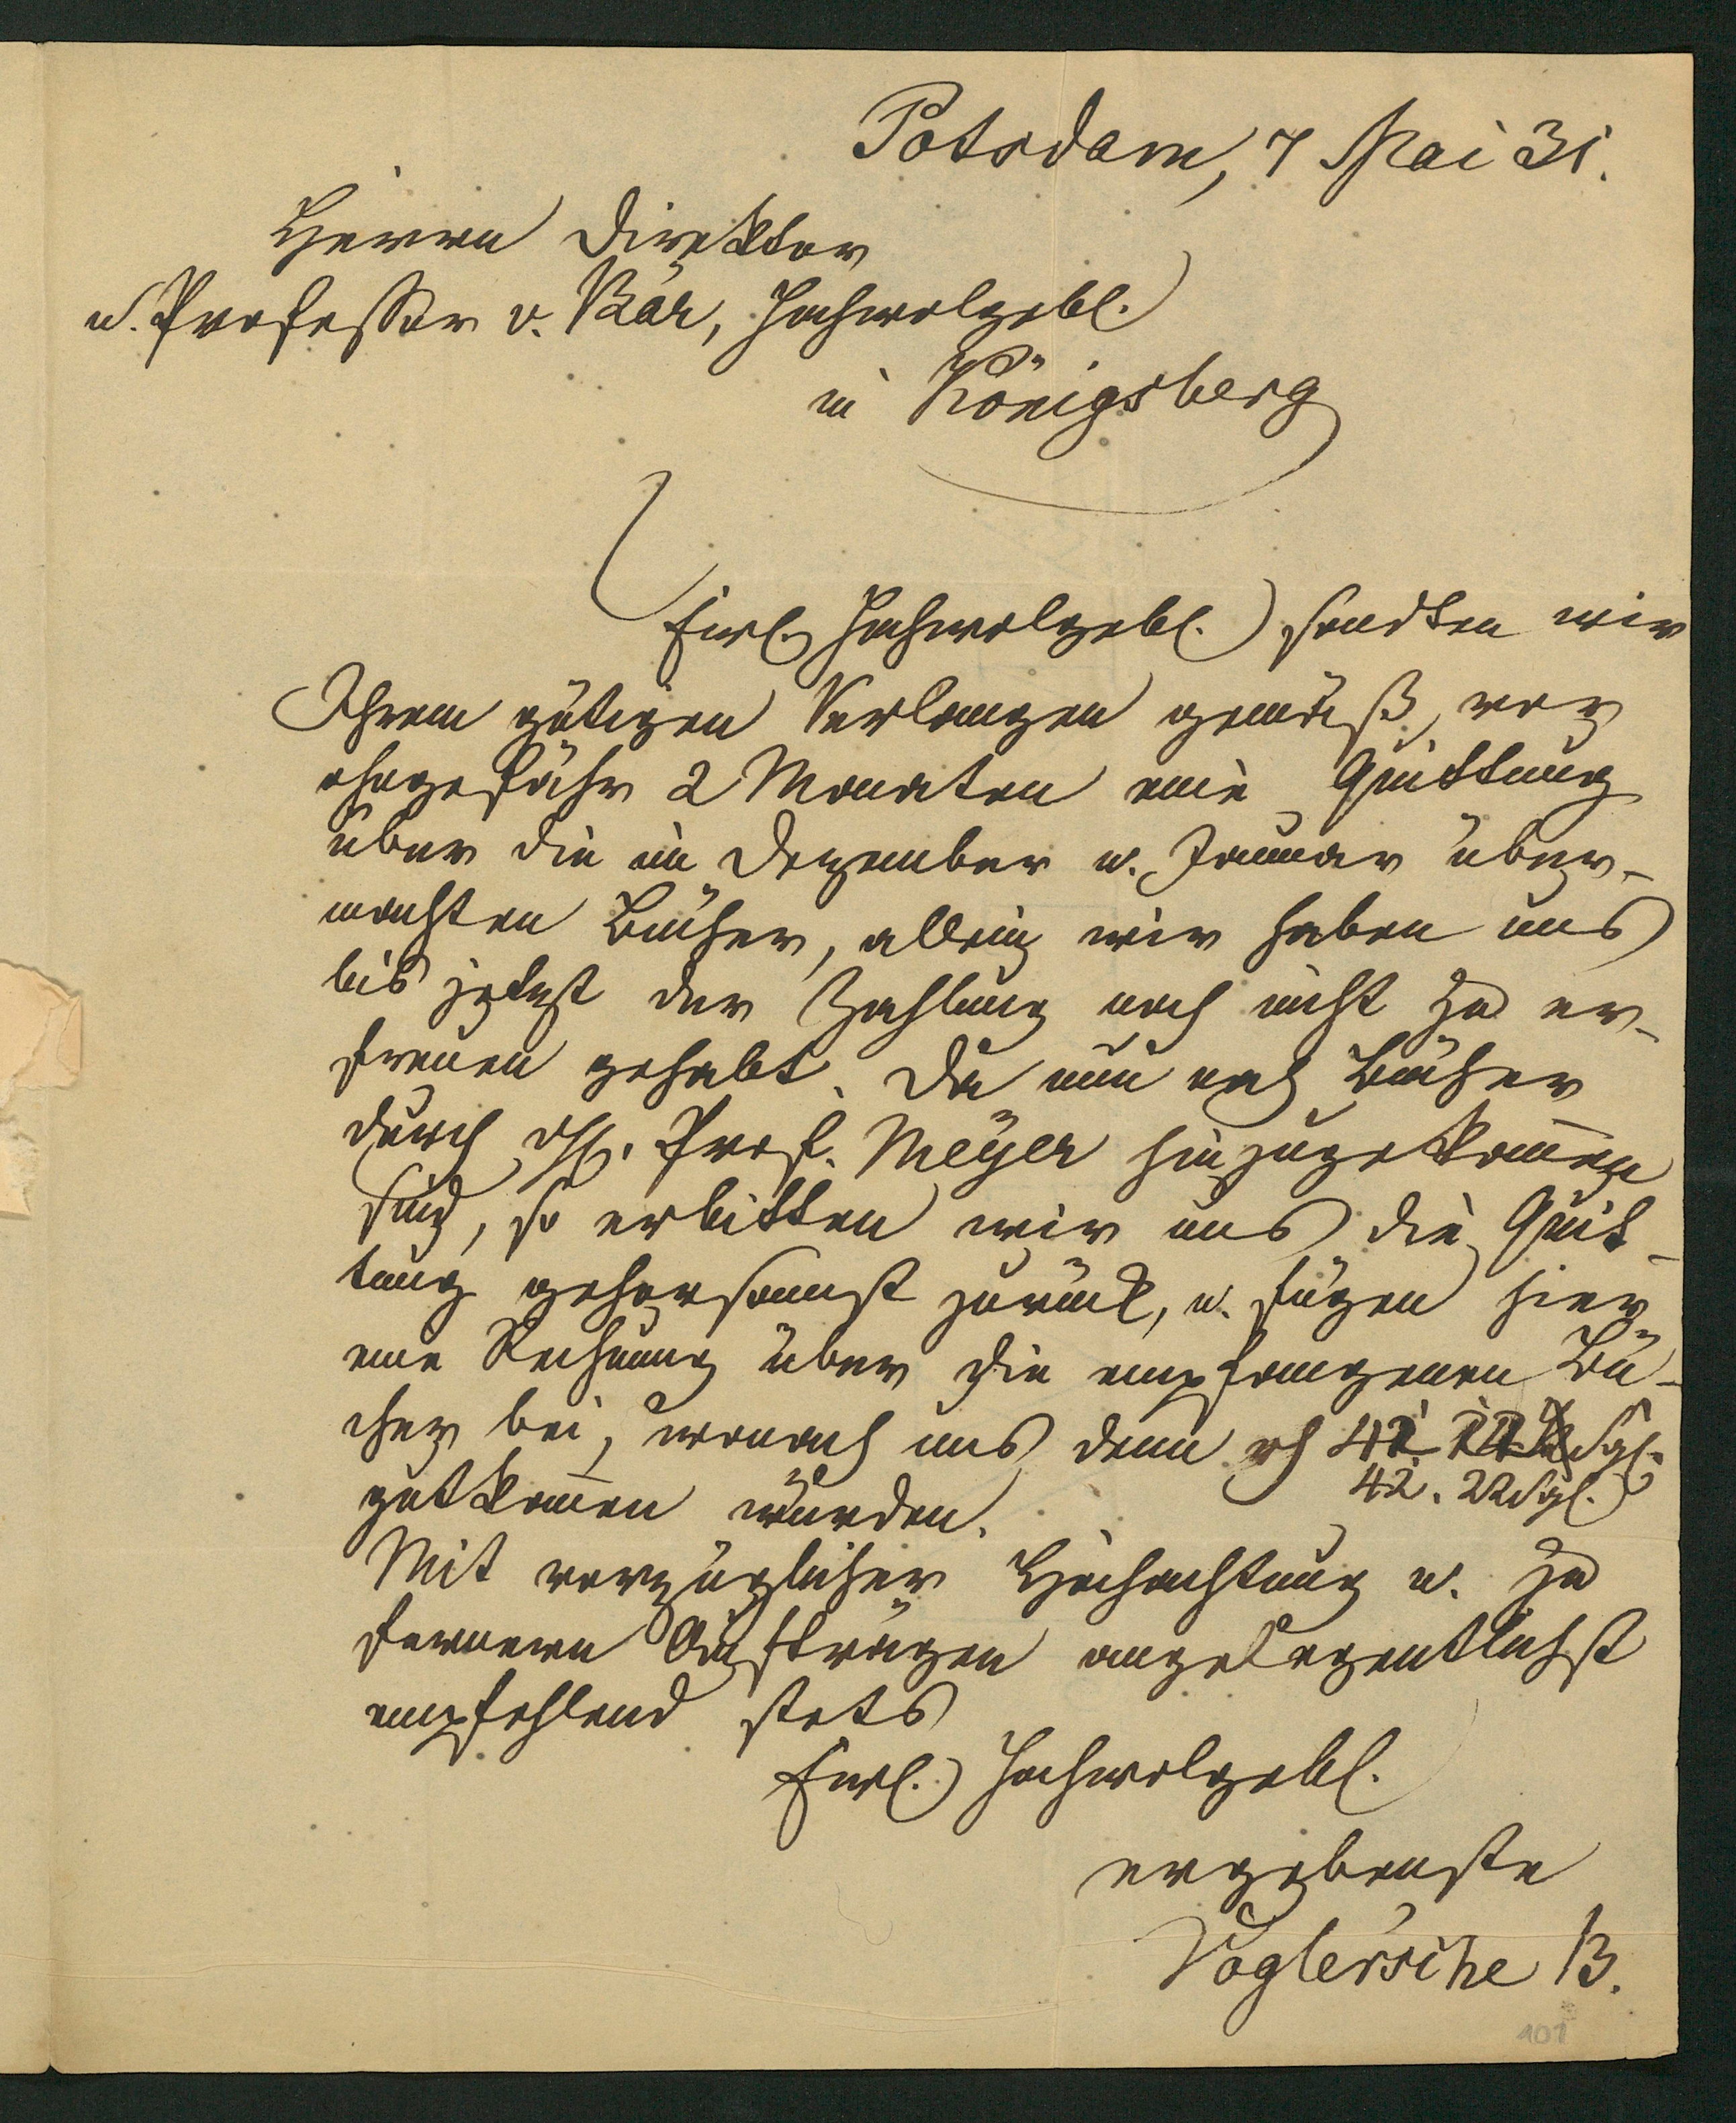 Potsdam, 7 Mai 31.
Herrn Direktor
u. Professor v. Bär, Hochwolgebl.
in Königsberg
Ewl. Hochwolgebl. sandten wir
Ihrem gütigen Verlangen gemäß, vor
ohngefähr 2 Monaten eine Quittung
über die im Dezember u. Januar über-
machten Bücher, allein wir haben uns
bis jetzt der Zahlung noch nicht zu er-
freuen gehabt. Da nun noch Bücher
durch Hl. Prof. Meyer hinzugekom̅en
sind, so erbitten wir uns die Quit-
tung gehorsamst zurück, u. fügen hier
eine Rechnung über die empfangenen Bü-
cher bei, wonach uns denn rh 41 Sgl.
42. 22 Sgl.
gutkom̅en würden.
Mit vorzüglicher Hochachtung u. zu
fernern Aufträgen angelegentlichst
empfehlend stets
Ewl. Hochwolgebl.
ergebenste
Voglersche B.
101